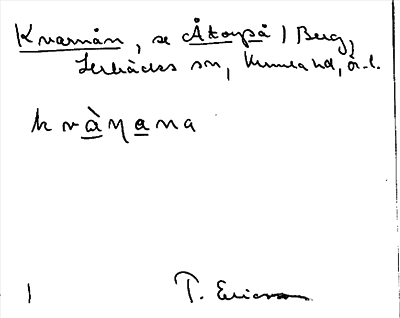 Kvarnån, se Åtorpså / Berg,
Lerbäcks sn, Kumla hd, ör. l.
kvàɳana
1 T. Ericsson